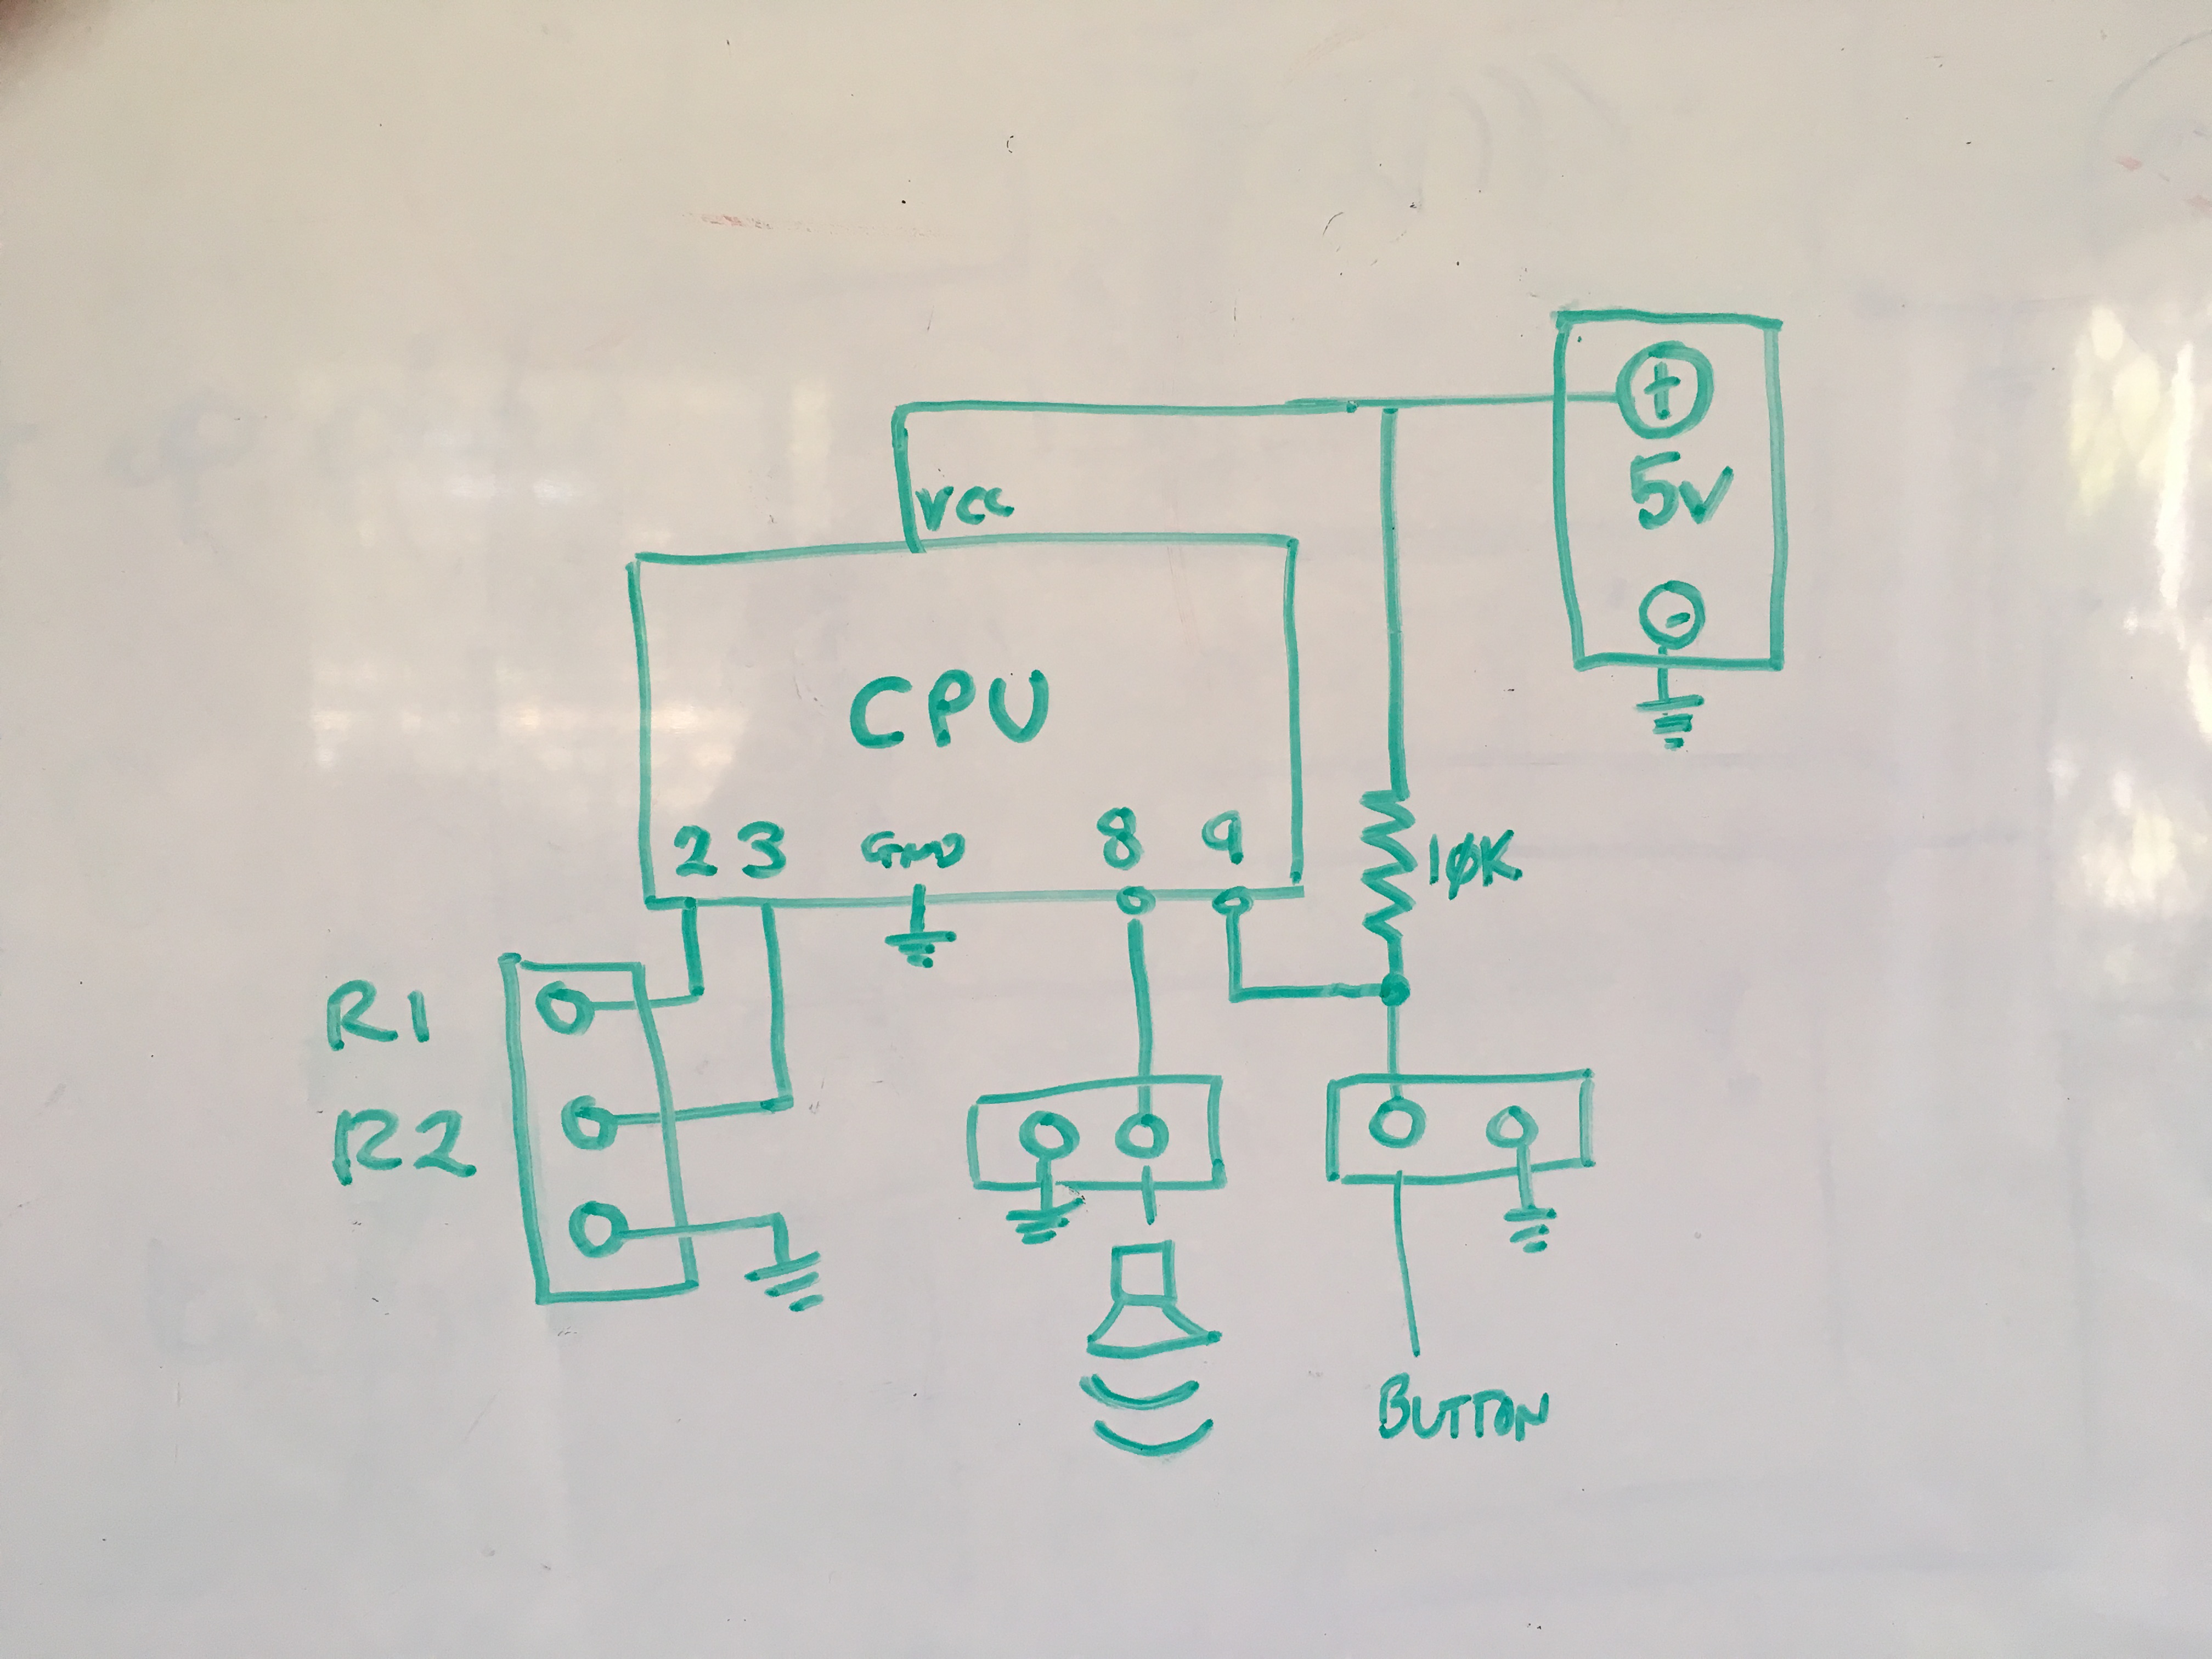 +
VCC
5V
-
CPU
2 3 GND 8 9
10K
R1
R2
BUTTON